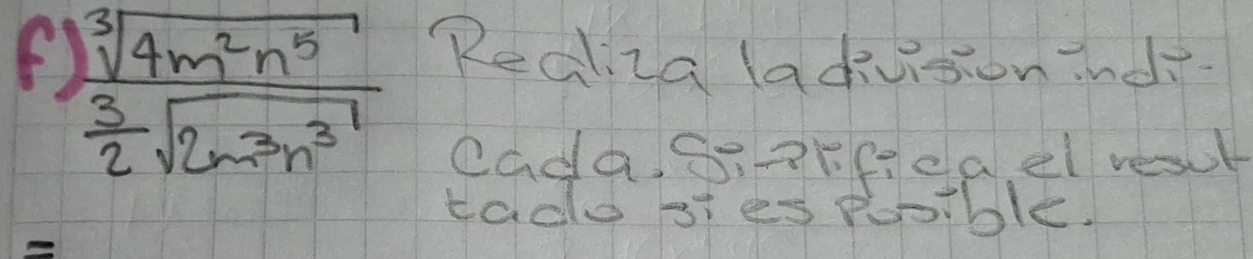 f) ∛(4m²n⁵) / (3/2 √(2m³n³)) Realiza la división indi-
cada. Simplifica el resul
tado si es posible.
=